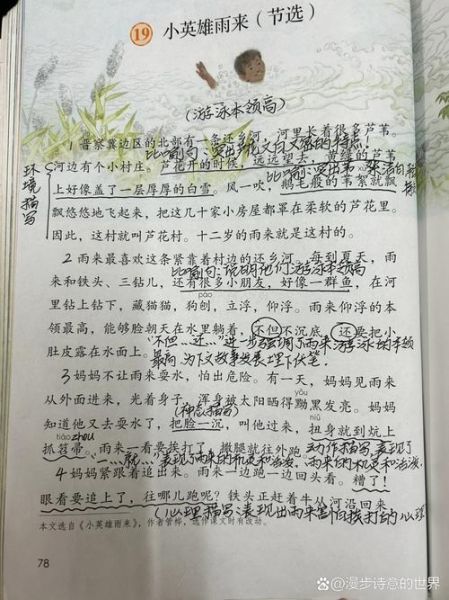 19 小英雄雨来（节选）
（游泳本领高）
1 晋察冀边区的北部有一条还乡河，河里长着很多芦苇。
河边有个小村庄。芦花开的时候，远远望去，黄绿的芦苇
上好像盖了一层厚厚的白雪。风一吹，鹅毛般的苇絮就飘
飘悠悠地飞起来，把这几十家小房屋都罩在柔软的芦花里。
因此，这村就叫芦花村。十二岁的雨来就是这村的。
环境描写
2 雨来最喜欢这条紧靠着村边的还乡河。每到夏天，雨
比喻句：说明他们游泳本领高
来和铁头、三钻儿，还有很多小朋友，好像一群鱼，在河
pāo
里钻上钻下，藏猫猫，狗刨，立浮，仰浮。雨来仰浮的本
领最高，能够脸朝天在水里躺着，不但不沉底，还要把小
肚皮露在水面上。
“不但…还”进一步强调了雨来游泳的本领
最高，为下文故事发展埋下伏笔.
3 妈妈不让雨来耍水，怕出危险。有一天，妈妈见雨来
yǒu
从外面进来，光着身子，浑身被太阳晒得黝黑发亮。妈妈
（神态描写）
niǔ
知道他又去耍水了，把脸一沉，叫他过来，扭身就到炕上
tiáo zhou
抓笤帚。雨来一看要挨打了，撒腿就往外跑。
动作描写，表现了
雨来的机灵和活泼
4 妈妈紧跟着追出来。雨来一边跑一边回头看。糟了！
眼看要追上了，往哪儿跑呢？铁头正赶着牛从河沿回来，
（心理描写：表现出雨来害怕挨打的心理
本文选自《小英雄雨来》，作者管桦，选作课文时有改动。
78
百家号@漫步诗意的世界